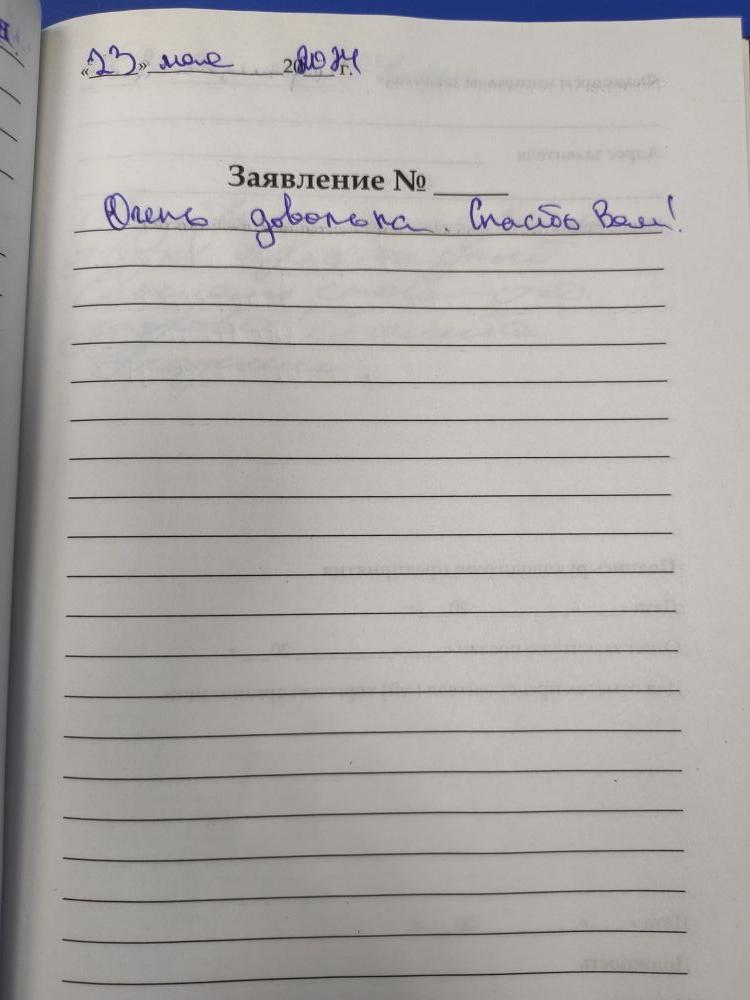 «23» мая 202024 г.
Заявление № ____
Очень довольна. Спасибо Вам!